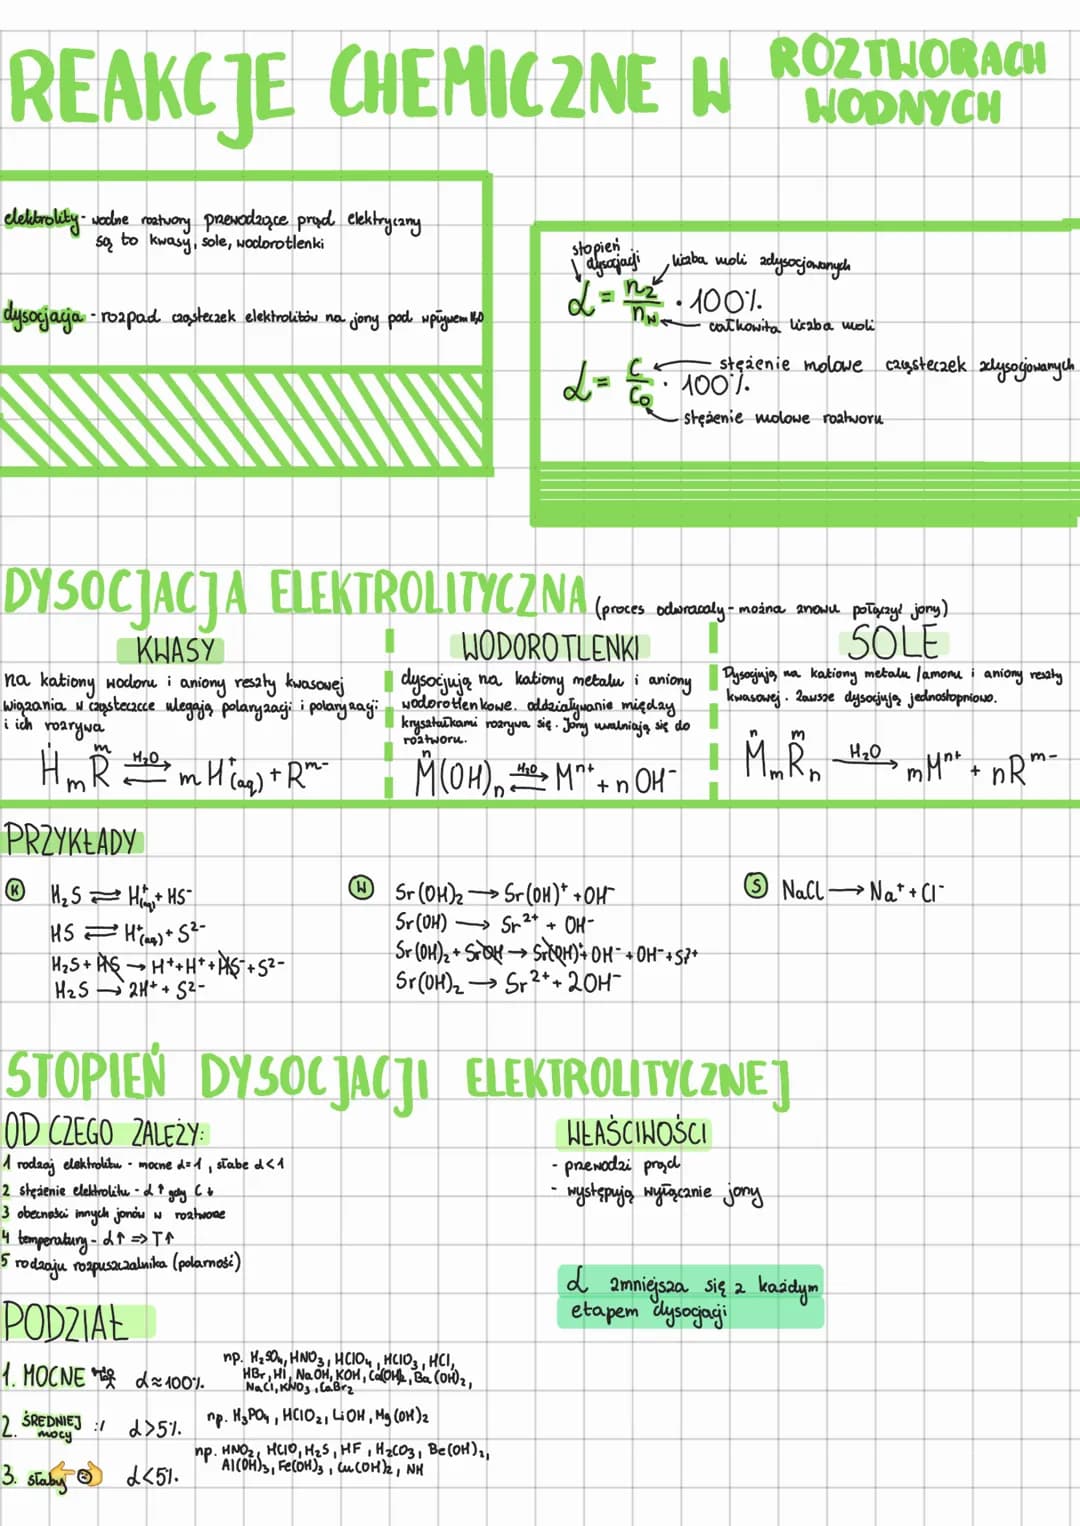 REAKCJE CHEMICZNE W ROZTWORACH WODNYCH
elektrolity - wodne roztwory przewodzące prąd elektryczny
są to kwasy, sole, wodorotlenki
dysocjacja - rozpad cząsteczek elektrolitów na jony pod wpływem H₂O
stopień
dysocjacji
liczba moli zdysocjowanych
α = n_z/n_w · 100%
całkowita liczba moli
α = C/C₀ · 100%
stężenie molowe cząsteczek zdysocjowanych
stężenie molowe roztworu
DYSOCJACJA ELEKTROLITYCZNA (proces odwracaly - można znowu połączyć jony)
KWASY
na kationy wodoru i aniony reszty kwasowej
wiązania w cząsteczce ulegają polaryzacji i polaryzacji
i ich rozrywa
HₘR ⇌ m H⁺(aq) + Rᵐ⁻
H₂O
WODOROTLENKI
dysocjują na kationy metalu i aniony
wodorotlenkowe. oddziaływanie między
kryształkami rozrywa się. Jony uwalniają się do
roztworu.
M(OH)ₙ ⇌ Mⁿ⁺ + n OH⁻
H₂O
SOLE
Dysocjują na kationy metalu /amonu i aniony reszty
kwasowej. Zawsze dysocjują jednostopniowo.
MₘRₙ → mMⁿ⁺ + nRᵐ⁻
H₂O
PRZYKŁADY
K
H₂S ⇌ H⁺(aq) + HS⁻
HS ⇌ H⁺(aq) + S²⁻
H₂S + HS → H⁺ + H⁺ + HS⁻ + S²⁻
H₂S → 2H⁺ + S²⁻
W
Sr(OH)₂ → Sr(OH)⁺ + OH⁻
Sr(OH) → Sr²⁺ + OH⁻
Sr(OH)₂ + SrOH → Sr(OH)⁺ + OH⁻ + OH⁻ + S²⁺
Sr(OH)₂ → Sr²⁺ + 2OH⁻
S
NaCl → Na⁺ + Cl⁻
STOPIEŃ DYSOCJACJI ELEKTROLITYCZNEJ
OD CZEGO ZALEŻY:
1 rodzaj elektrolitu - mocne α=1, słabe α<1
2 stężenie elektrolitu - α ↑ gdy C ↓
3 obecności innych jonów w roztworze
4 temperatury - α↑ => T↑
5 rodzaju rozpuszczalnika (polarność)
WŁAŚCIWOŚCI
- przewodzi prąd
- występują wyłącznie jony
α zmniejsza się z każdym
etapem dysocjacji
PODZIAŁ
1. MOCNE α≈100%
np. H₂SO₄, HNO₃, HClO₄, HClO₃, HCl,
HBr, HI, NaOH, KOH, Ca(OH)₂, Ba(OH)₂,
NaCl, KNO₃, CaBr₂
2. ŚREDNIEJ mocy :/ α>5%
np. H₃PO₄, HClO₂, LiOH, Mg(OH)₂
3. słaby α<5%
np. HNO₂, HClO, H₂S, HF, H₂CO₃, Be(OH)₂,
Al(OH)₃, Fe(OH)₃, Cu(OH)₂, NH